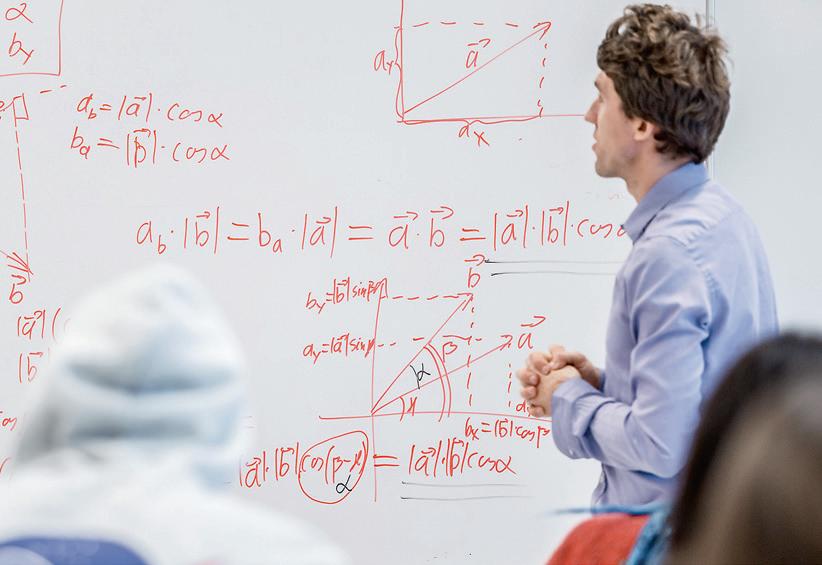 α
b_y
a_y
a⃗
a_x
a_b = |a⃗| · cos α
b_a = |b⃗| · cos α
a_b · |b⃗| = b_a · |a⃗| = a⃗ · b⃗ = |a⃗| · |b⃗| · cos
b⃗
b⃗
b_y = |b⃗| sin β
|a⃗| (
a_y = |a⃗| sin
β
a⃗
|b⃗
α
b_x = |b⃗| cos β
|a⃗| · |b⃗| cos(β −
) = |a⃗| · |b⃗| cos α
α